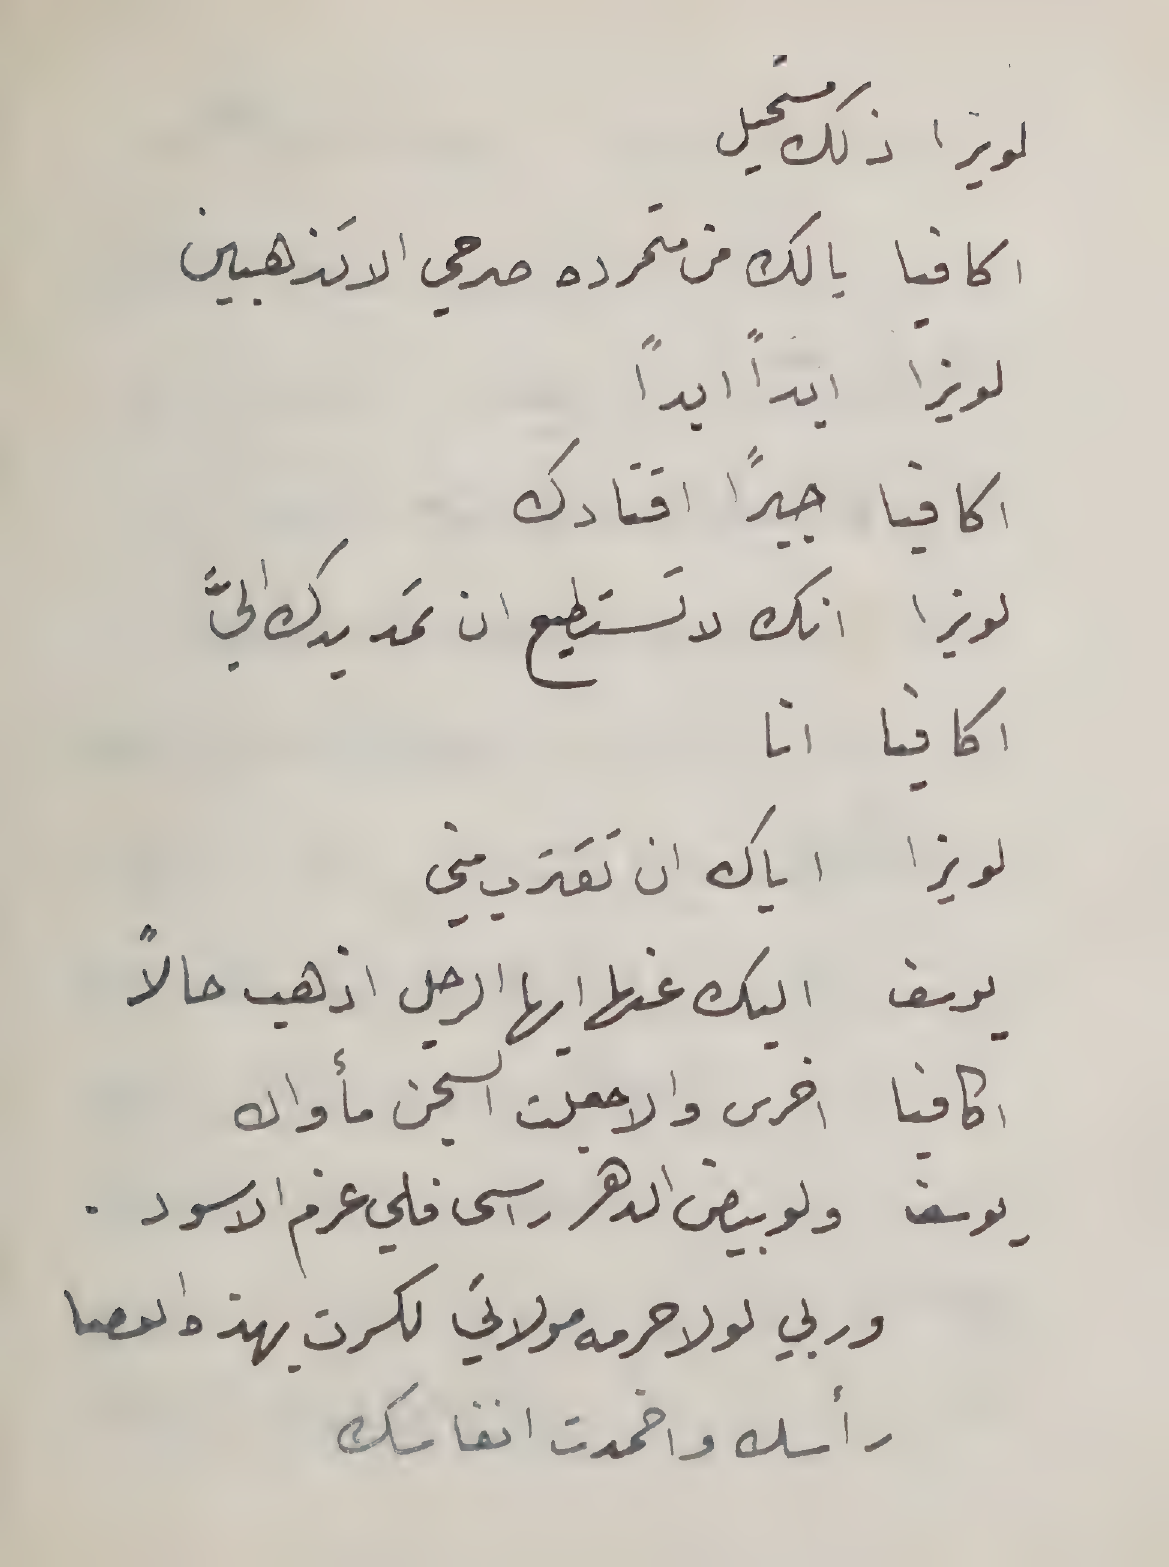 لويزا ذلك مستحيل
اكافيا يالك من متمرده مدحي الا تذهبين
لويزا ابداً ابداً
اكافيا جبراً اقتادك
لويزا انك لا تستطيع ان تمد يدك اليَّ
اكافيا انا
لويزا اياك ان تقترب مني
يوسف اليك عنها ايها الرجل اذهب حالاً
اكافيا اخرس والا جعلت السجن مأواك
يوسف ولو بيض الدهر راسي فلي عزم الاسود .
وربي لولا حرمه مولاتي لكسرت بهذه العصا
رأسك واخمدت انفاسك